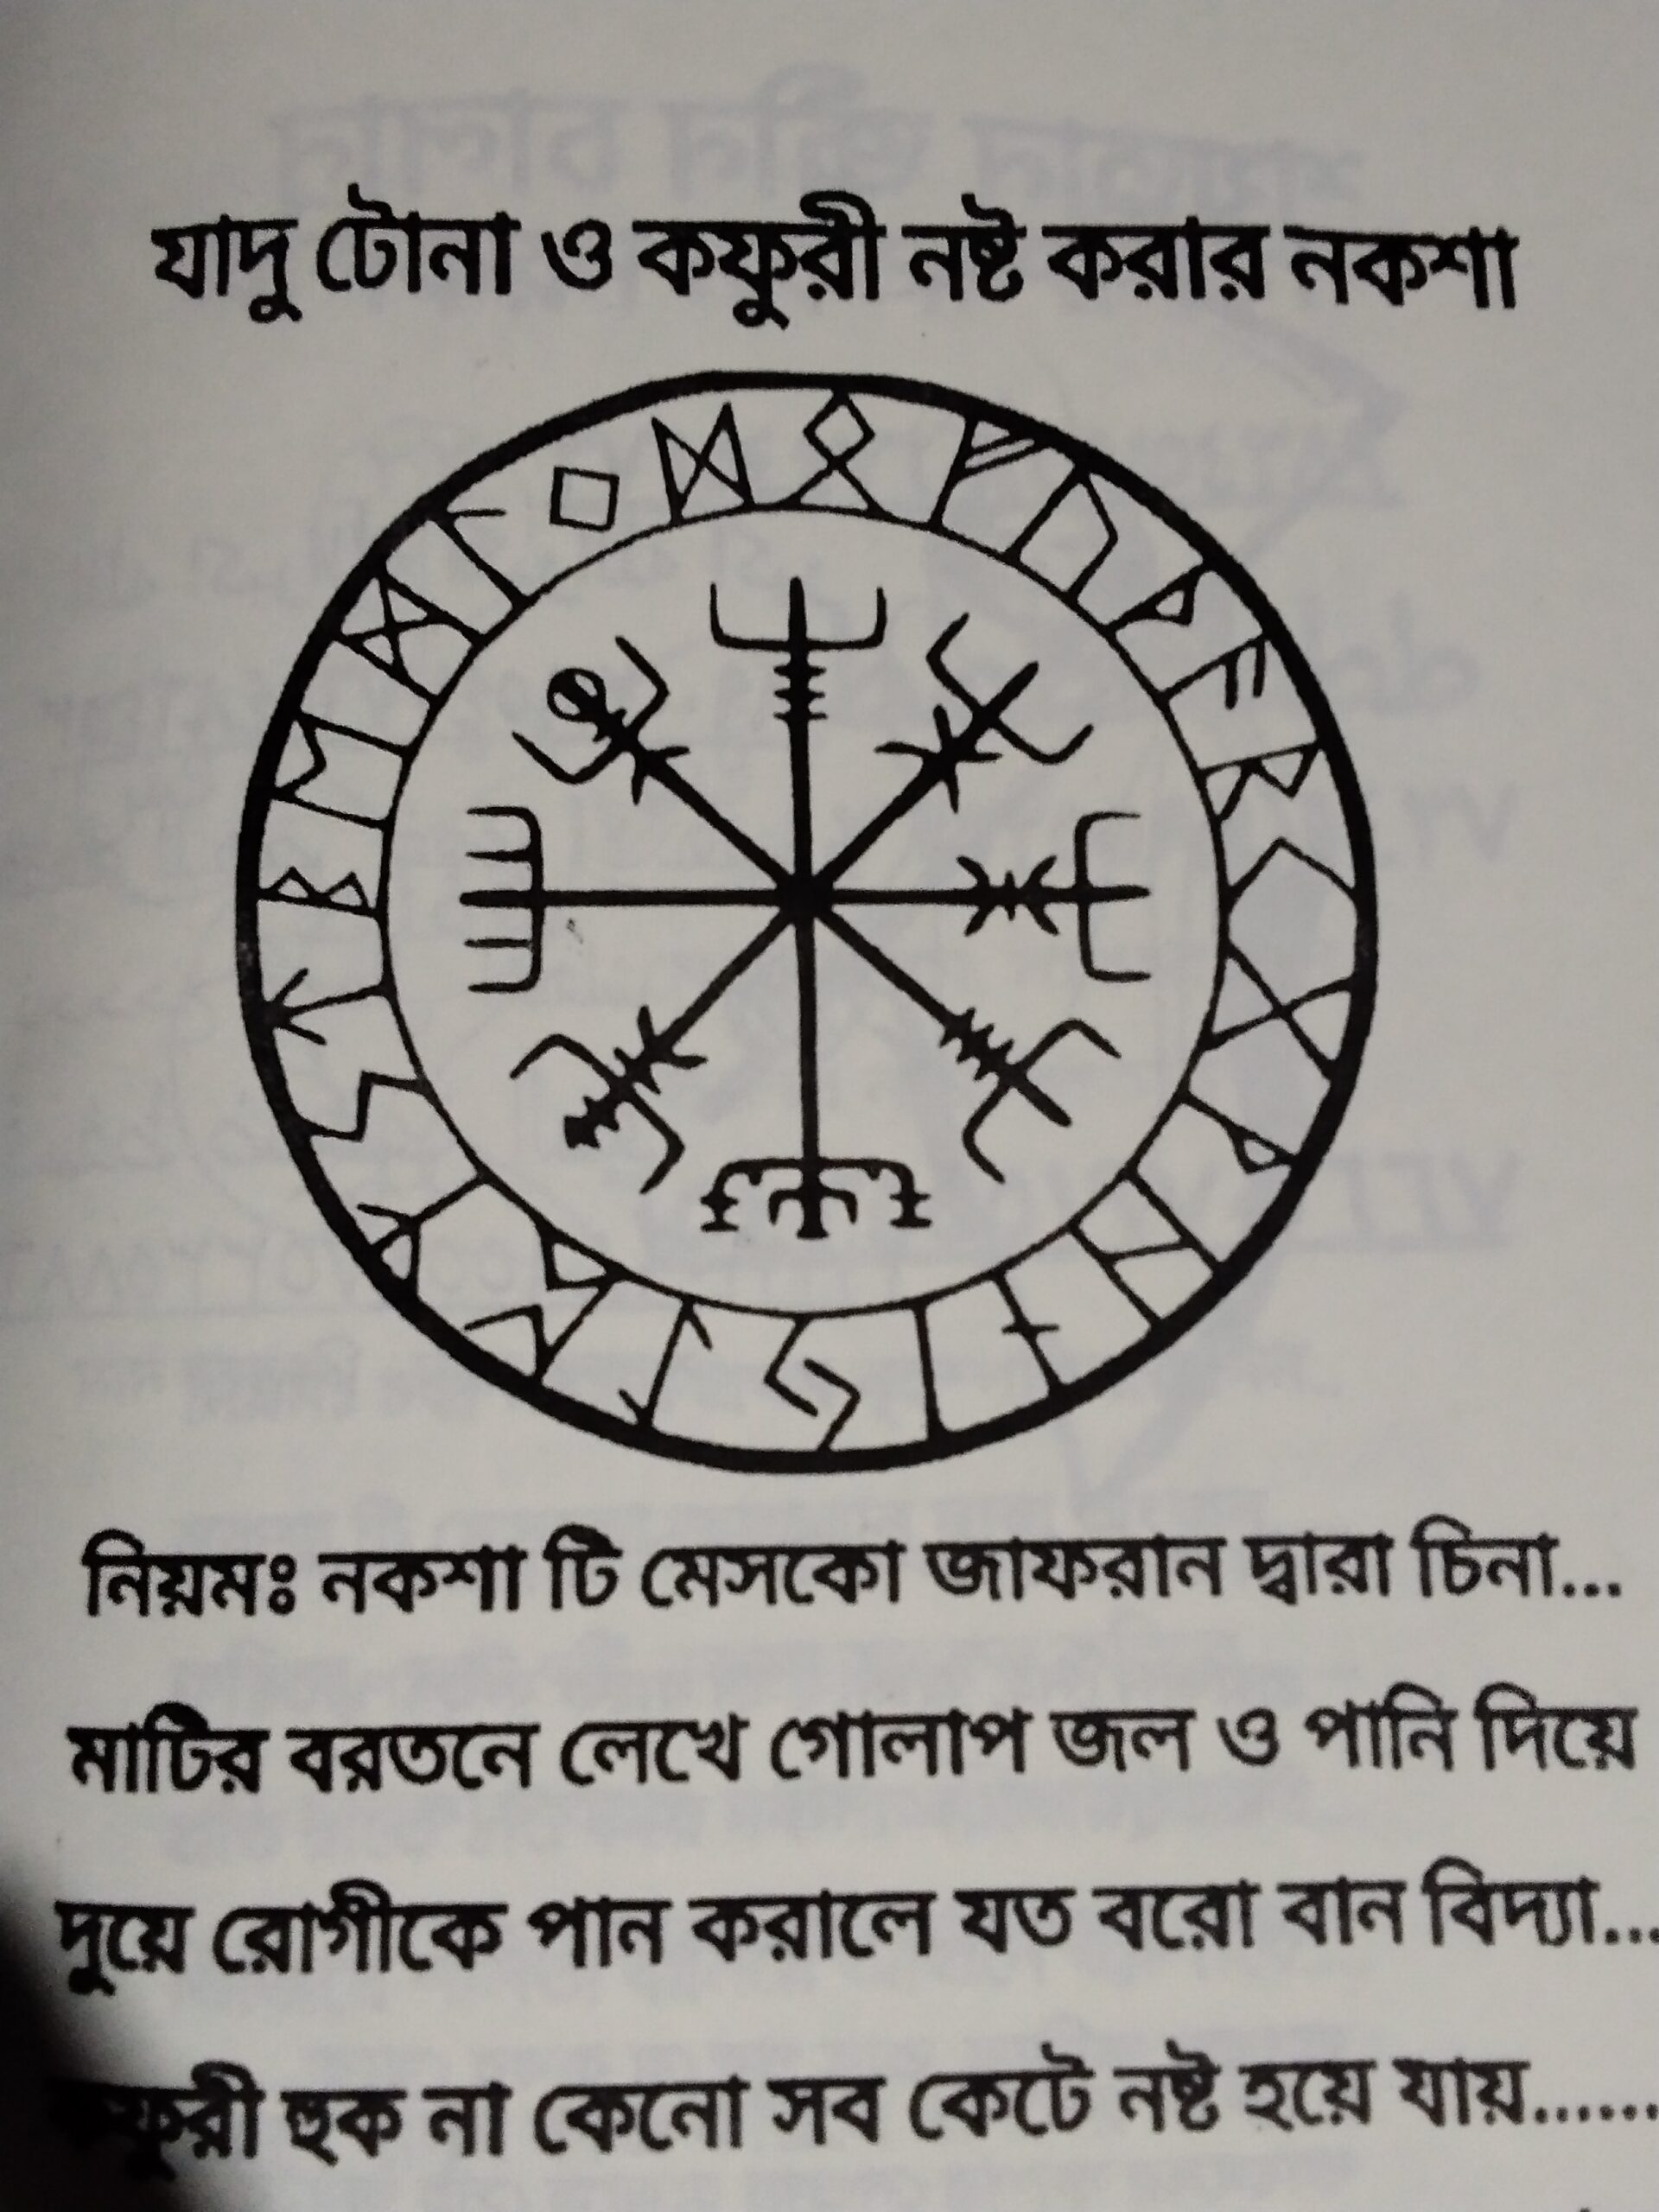 যাদু টোনা ও কফুরী নষ্ট করার নকশা
নিয়মঃ নকশা টি মেসকো জাফরান দ্বারা চিনা...
মাটির বরতনে লেখে গোলাপ জল ও পানি দিয়ে
দুয়ে রোগীকে পান করালে যত বরো বান বিদ্যা...
হুক না কেনো সব কেটে নষ্ট হয়ে যায়......